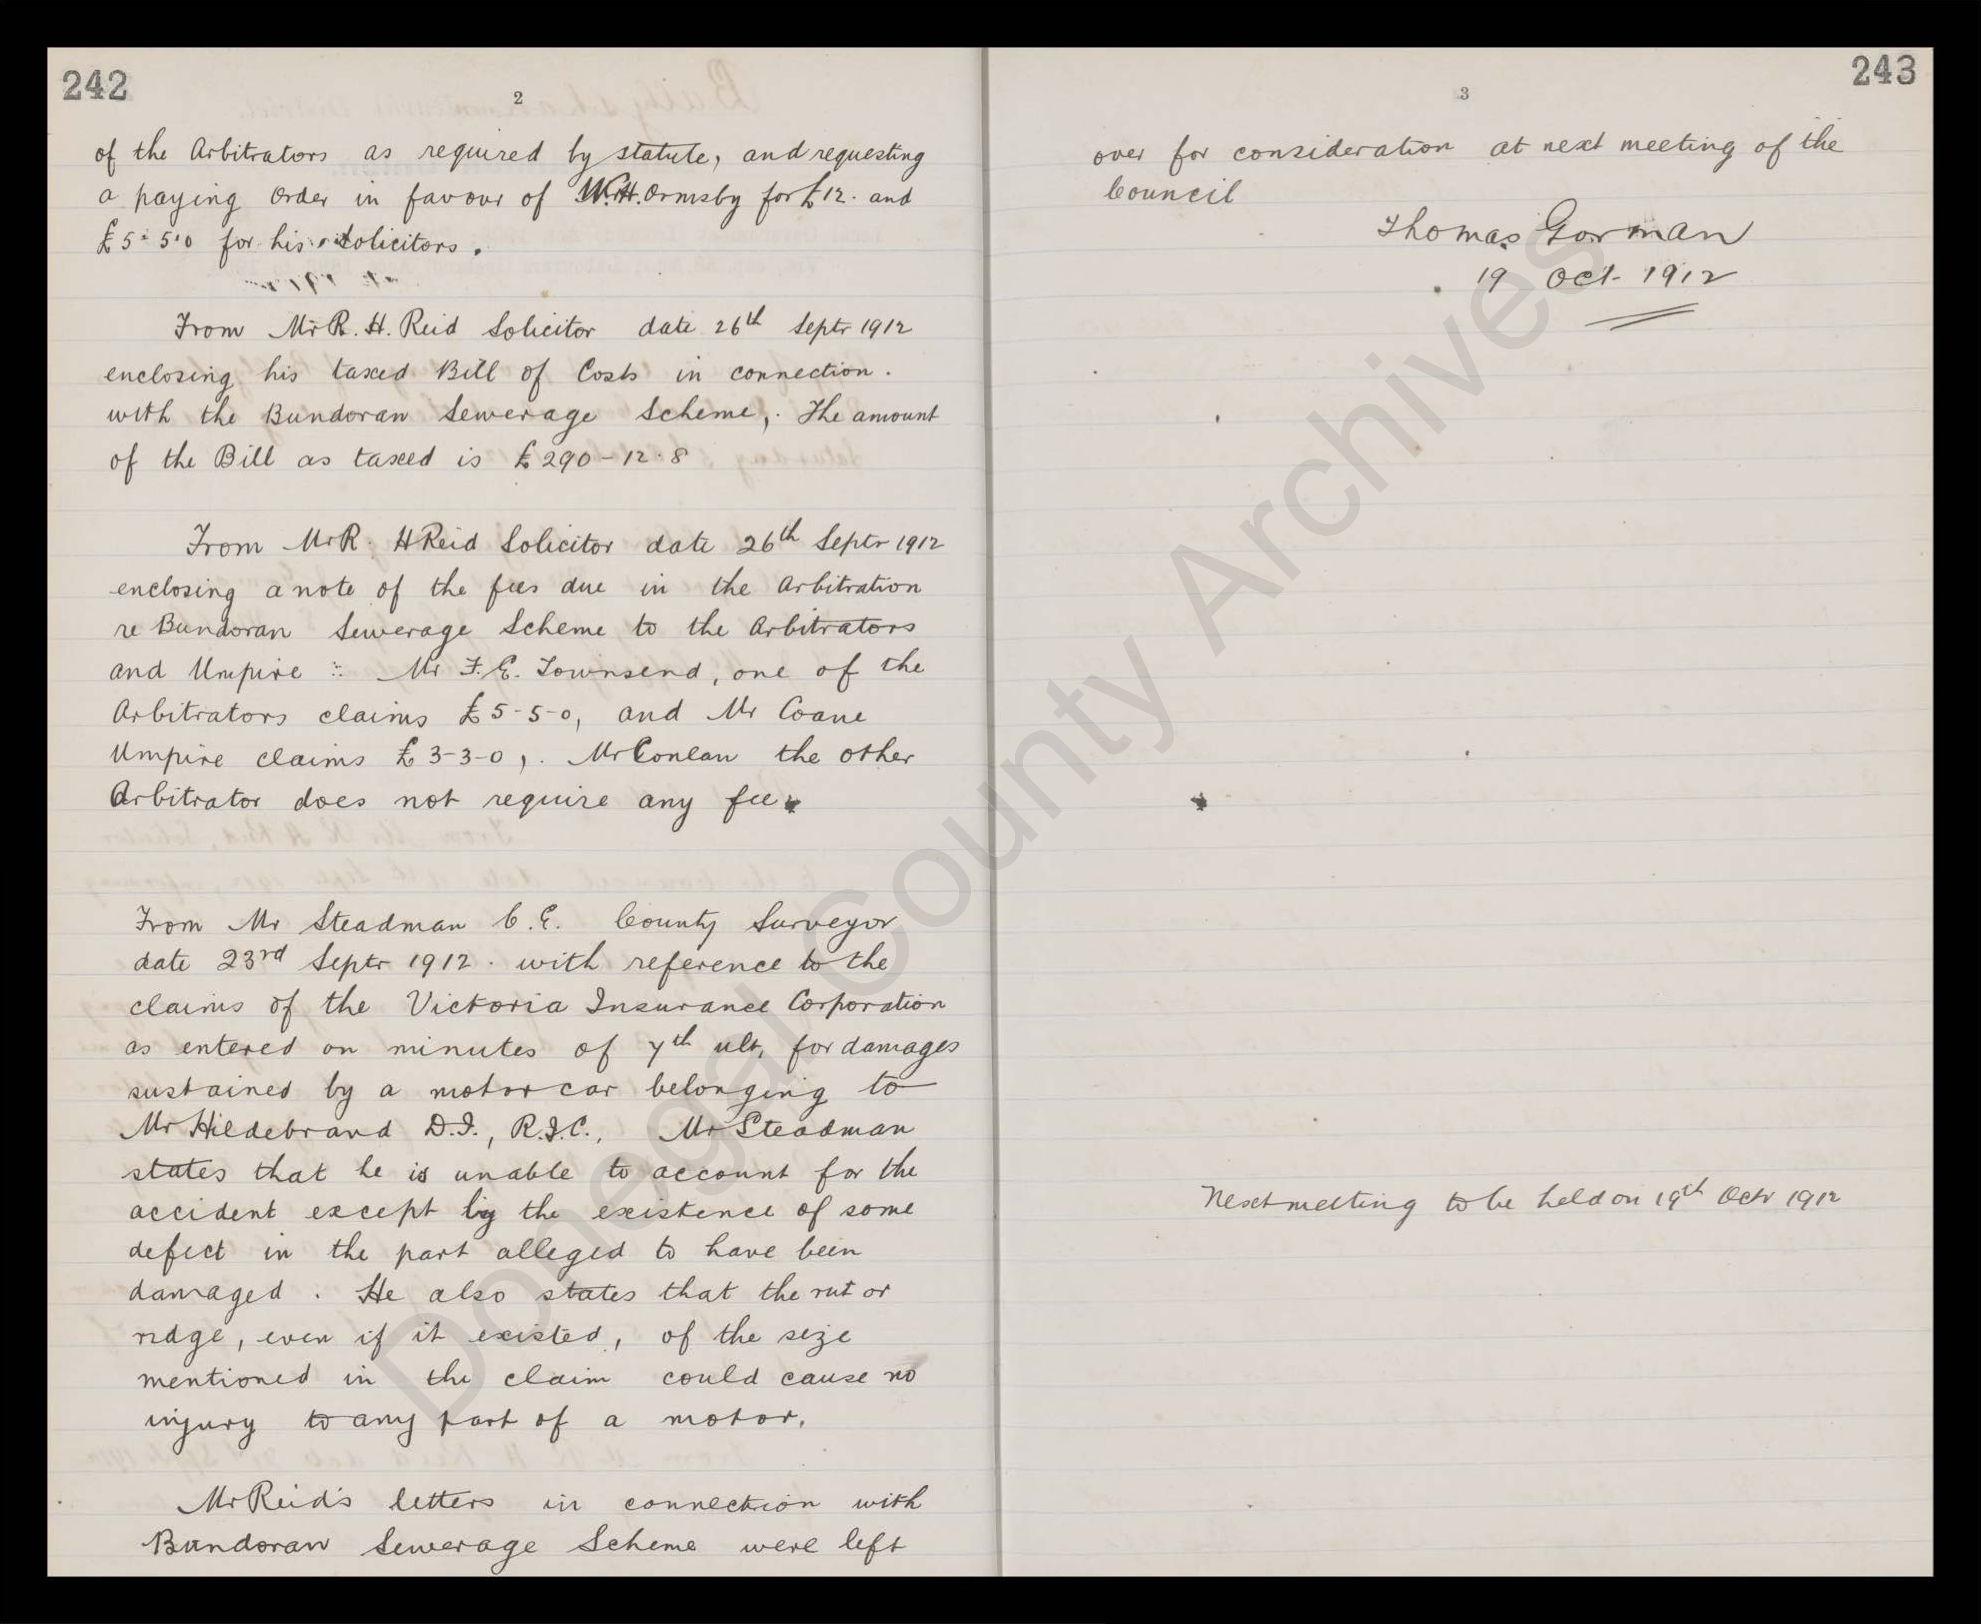 242
2
of the Arbitrators as required by statute, and requesting
a paying order in favour of W.H. Ormsby for £12. and
£5-5.0 for his Solicitors.
From Mr R. H. Reid Solicitor date 26th Septr 1912
enclosing his taxed Bill of Costs in connection.
with the Bundoran Sewerage Scheme, The amount
of the Bill as taxed is £290-12.8
From Mr R. H Reid Solicitor date 26th Septr 1912
enclosing a note of the fees due in the Arbitration
re Bundoran Sewerage Scheme to the Arbitrators
and Umpire :- Mr F. E. Townsend, one of the
Arbitrators claims £5-5-0, and Mr Coane
Umpire claims £3-3-0,. Mr Conlan the other
Arbitrator does not require any fee.
From Mr Steadman C.E. County Surveyor
date 23rd Septr 1912. with reference to the
claims of the Victoria Insurance Corporation
as entered on minutes of 7th ult, for damages
sustained by a motor car belonging to
Mr Hildebrand D.I., R.I.C., Mr Steadman
states that he is unable to account for the
accident except by the existence of some
defect in the part alleged to have been
damaged. He also states that the rut or
ridge, even if it existed, of the seize
mentioned in the claim could cause no
injury to any part of a motor.
Mr Reid's letters in connection with
Bundoran Sewerage Scheme were left
243
3
over for consideration at next meeting of the
Council
Thomas Gorman
19 Oct. 1912
Next meeting to be held on 19th Octr 1912
Donegal County Archives